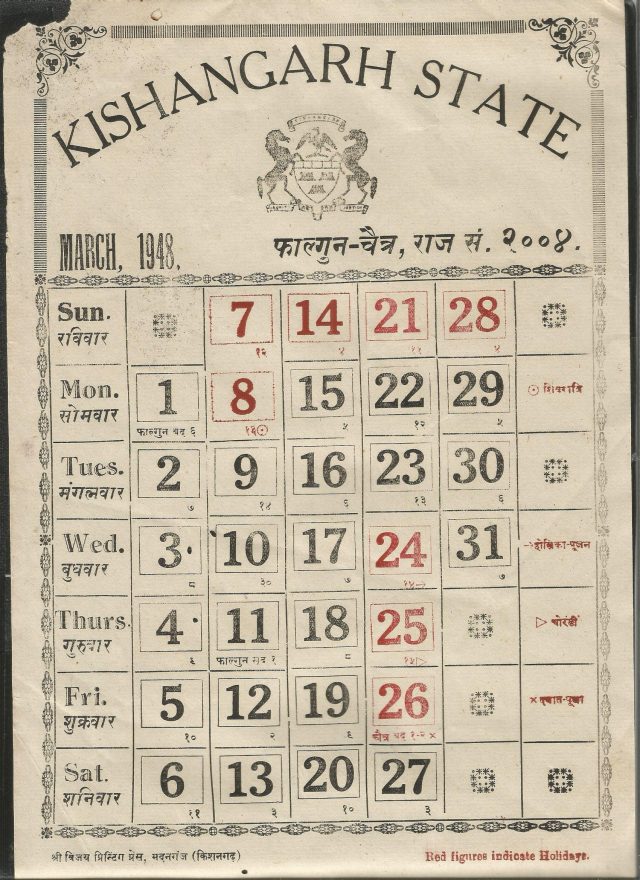 KISHANGARH STATE
MARCH, 1948. फाल्गुन-चैत्र, राज सं. २००४.
Sun. 7 14 21 28
रविवार १२ ४ ११ ४
Mon. 1 8 15 22 29 शिवरात्रि
सोमवार फाल्गुन बद ६ १३ ५ १२ ५
Tues. 2 9 16 23 30
मंगलवार ७ १४ ६ १३ ६
Wed. 3 10 17 24 31 होलिका-पूजन
बुधवार ८ ३० ७ १४ ७
Thurs. 4 11 18 25
गुरुवार ९ फाल्गुन सुद १ ८ १५
Fri. 5 12 19 26
शुक्रवार १० २ ९ चैत्र बद १-२ ×
Sat. 6 13 20 27
शनिवार ११ ३ १० ३
श्री विजय प्रिन्टिंग प्रेस, मदनगंज (किशनगढ़) Red figures indicate Holidays.